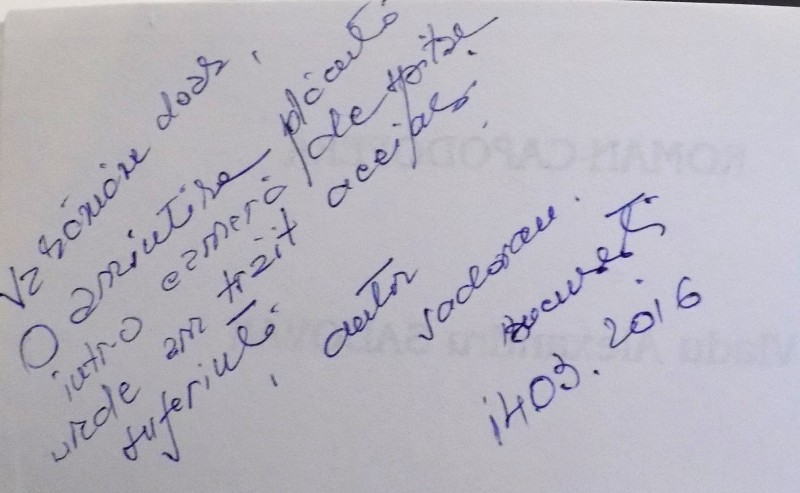 doar,
O amintire plăcută
intro cameră de spital
unde am trăit aceiași
suferință, autor Sadovan.
București
1403.2016
ROMAN CAPODOPERĂ
Vladu Alexandru SADOVAN